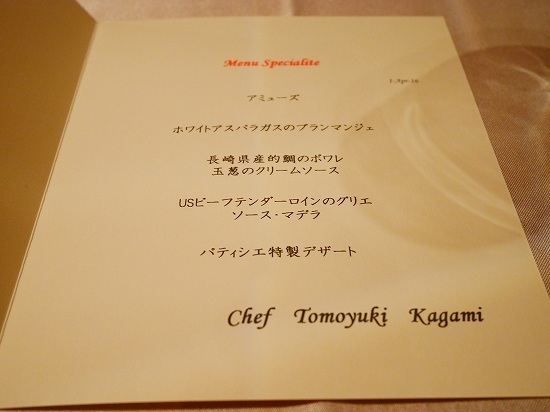 Menu Specialite
1-Apr-16
アミューズ
ホワイトアスパラガスのブランマンジェ
長崎県産的鯛のポワレ
玉葱のクリームソース
USビーフテンダーロインのグリエ
ソース・マデラ
パティシエ特製デザート
Chef Tomoyuki Kagami